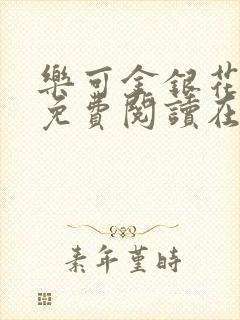 樂可金銀花
免費閱讀在
素年堇時